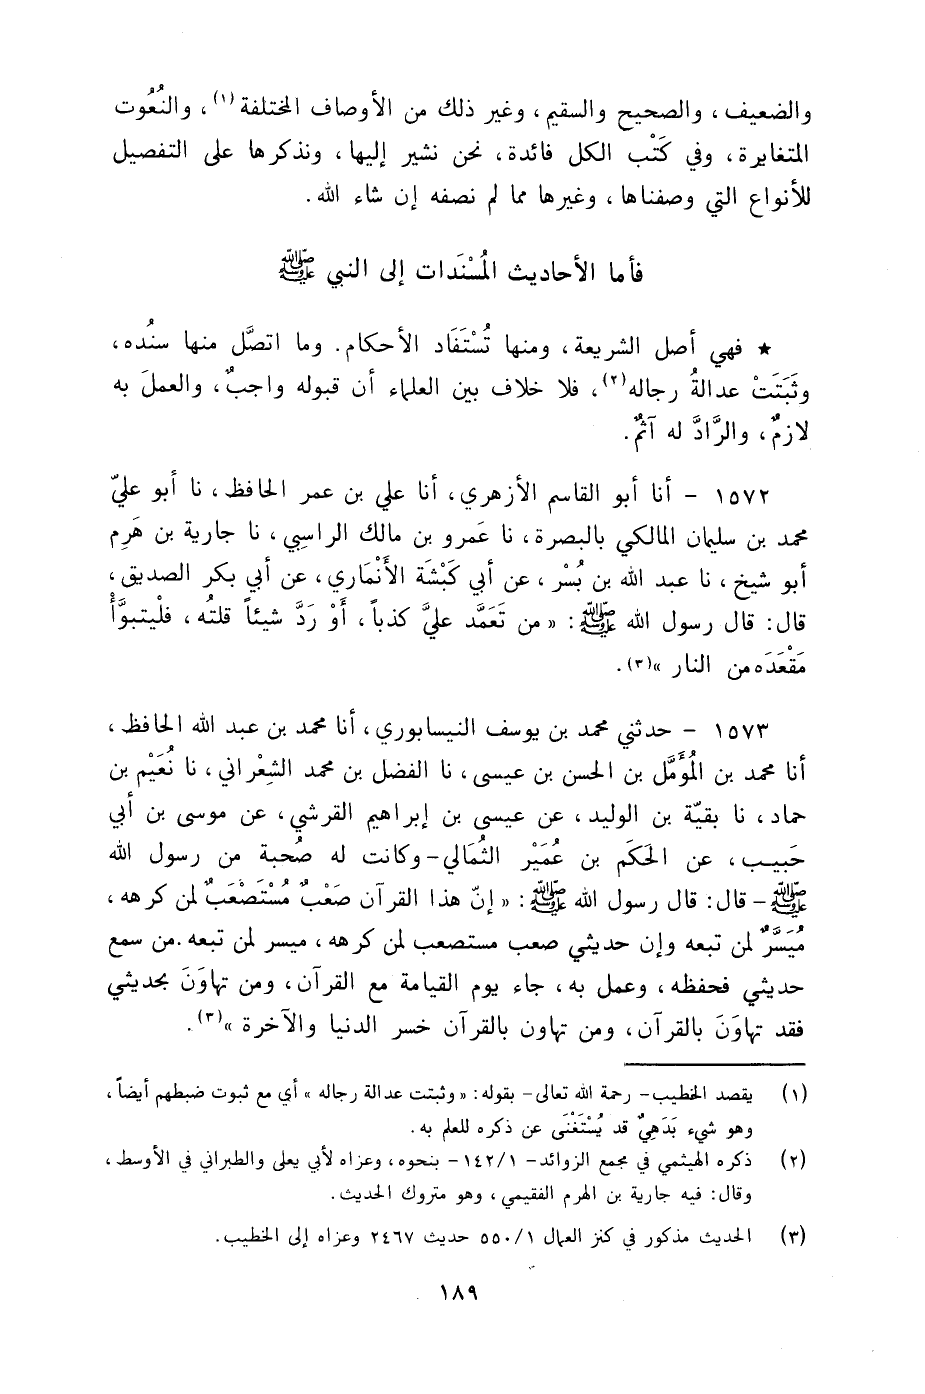 والضعيف، والصحيح والسقيم، وغير ذلك من الأوصاف المختلفة(١)، والنُّعُوت
المتغايرة، وفي كَتْب الكل فائدة، نحن نشير إليها، ونذكرها على التفصيل
للأنواع التي وصفناها، وغيرها مما لم نصفه إن شاء الله.
فأما الأحاديث المُسْنَدات إلى النبي ﷺ
★ فهي أصل الشريعة، ومنها تُسْتَفَاد الأحكام. وما اتصَّل منها سنُده،
وثَبَتَتْ عدالةُ رجاله(٢)، فلا خلاف بين العلماء أن قبوله واجبٌ، والعملَ به
لازمٌ، والرَّادَّ له آثمٌ.
١٥٧٢ - أنا أبو القاسم الأزهري، أنا علي بن عمر الحافظ، نا أبو عليّ
محمد بن سليمان المالكي بالبصرة، نا عَمرو بن مالك الراسِبي، نا جارية بن هَرِم
أبو شيخ، نا عبد الله بن بُسْر، عن أبي كَبْشَة الأَنْماري، عن أبي بكر الصديق،
قال: قال رسول الله ﷺ: « من تَعَمَّد عليَّ كذباً، أَوْ رَدَّ شيئاً قلتُه، فلْيتبوَّأْ
مَقْعَدَه من النار »(٣).
١٥٧٣ - حدثني محمد بن يوسف النيسابوري، أنا محمد بن عبد الله الحافظ،
أنا محمد بن المُؤَمَّل بن الحسن بن عيسى، نا الفضل بن محمد الشِعْراني، نا نُعَيْم بن
حماد، نا بقيّة بن الوليد، عن عيسى بن إبراهيم القرشي، عن موسى بن أبي
حَبيب، عن الحَكَم بن عُمَيْر الثُمالي - وكانت له صُحبة من رسول الله
ﷺ - قال: قال رسول الله ﷺ: « إنّ هذا القرآن صَعْبٌ مُسْتَصْعَبٌ لمن كرهه،
مُيَسَّرٌ لمن تبعه وإن حديثي صعب مستصعب لمن كرهه، ميسر لمن تبعه. من سمع
حديثي فحفظه، وعمل به، جاء يوم القيامة مع القرآن، ومن تهاوَنَ بحديثي
فقد تهاوَنَ بالقرآن، ومن تهاون بالقرآن خسر الدنيا والآخرة »(٣).
(١) يقصد الخطيب - رحمة الله تعالى - بقوله: « وثبتت عدالة رجاله » أي مع ثبوت ضبطهم أيضاً،
وهو شيء بَدَهِيٌّ قد يُسْتَغْنَى عن ذكره للعلم به.
(٢) ذكره الهيثمي في مجمع الزوائد - ١٤٢/١ - بنحوه، وعزاه لأبي يعلى والطبراني في الأوسط،
وقال: فيه جارية بن الهرم الفقيمي، وهو متروك الحديث.
(٣) الحديث مذكور في كنز العمال ٥٥٠/١ حديث ٢٤٦٧ وعزاه إلى الخطيب.
١٨٩